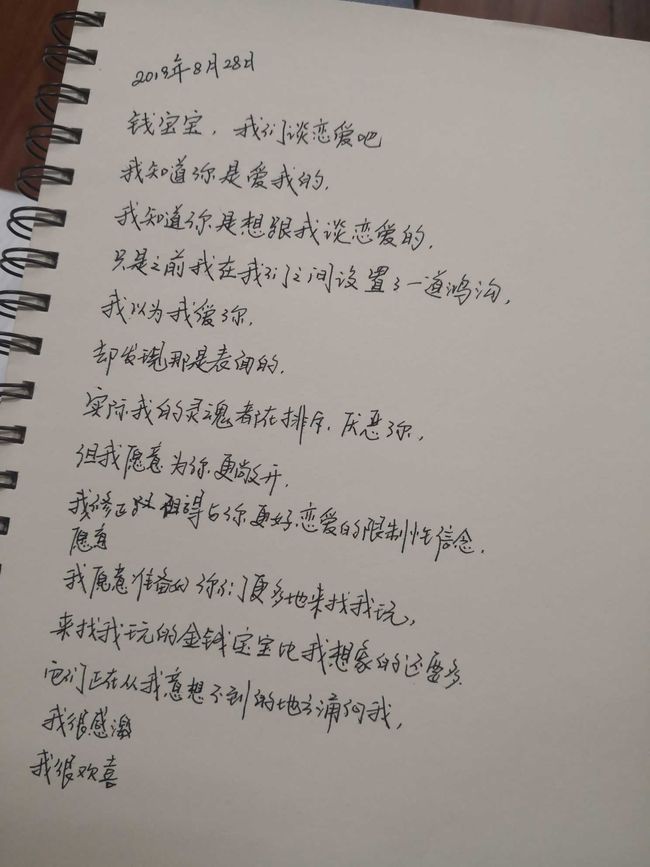 2019年8月28日
钱宝宝，我们谈恋爱吧
我知道你是爱我的.
我知道你是想跟我谈恋爱的,
只是之前我在我们之间设置了一道鸿沟,
我以为我爱你,
却发现那是表面的.
实际我的灵魂都在排斥、厌恶你,
但我愿意为你更敞开.
我修正 阻碍与你更好恋爱的限制性信念.
愿意
我愿意准备好你们更多地来找我玩,
来找我玩的金钱宝宝比我想象的还要多.
它们正在从我意想不到的地方涌向我,
我很感激
我很欢喜